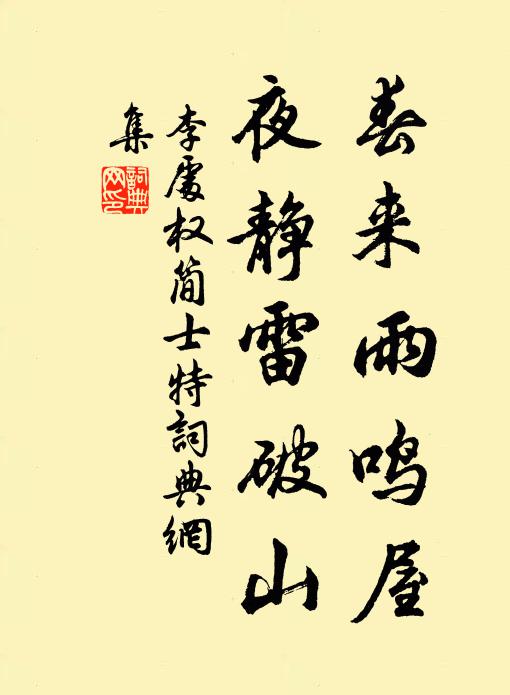 春来雨鸣屋
夜静雷破山
李處权简士特詞典網
集
詞典网印